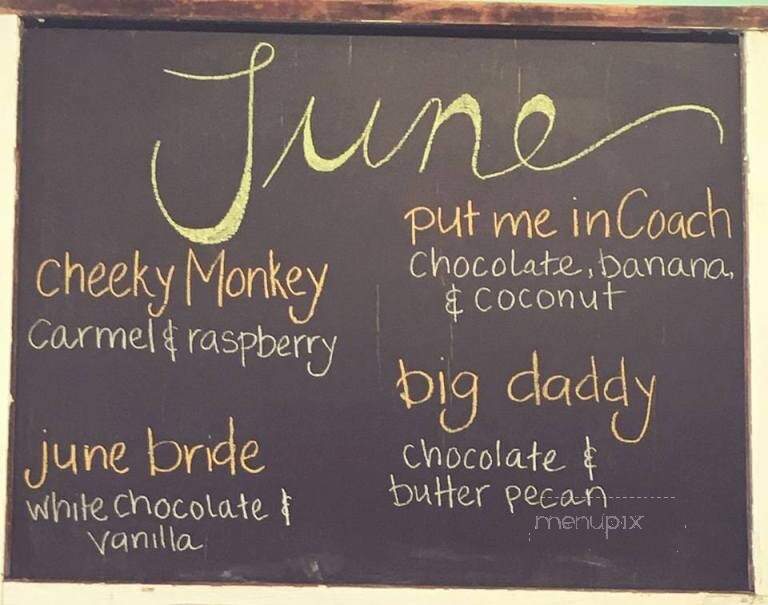 June
cheeky Monkey
Carmel & raspberry
june bride
white chocolate &
vanilla
put me in Coach
Chocolate, banana,
& coconut
big daddy
chocolate &
butter pecan
menupix